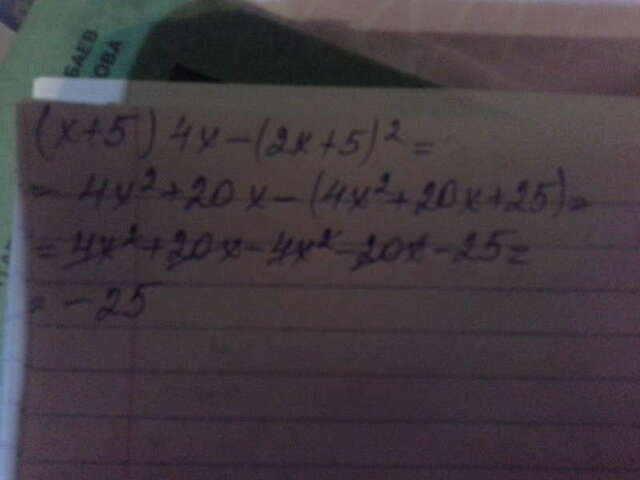 БАЕВ
ОВА
(x+5)4x-(2x+5)²=
= 4x²+20x-(4x²+20x+25)=
= 4x²+20x-4x²-20x-25=
= -25